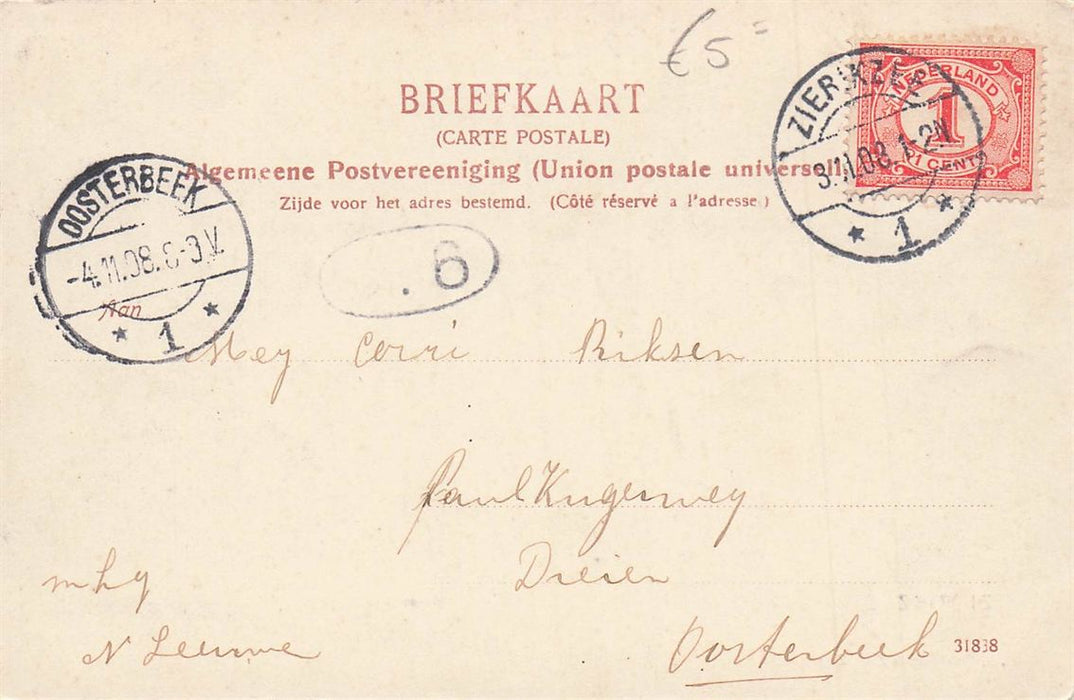 €5=
BRIEFKAART
(CARTE POSTALE)
Algemeene Postvereeniging (Union postale universell
Zijde voor het adres bestemd. (Côté réservé a l'adresse)
NEDERLAND
1
1 CENT
ZIERIKZEE
3.11.08.1-2N
1
OOSTERBEEK
-4.11.08.8-9V
1
.6
Aan
Mej Corri Riksen
Paul Krugerweg
Dreien
mhg
N Leeuwe
Oosterbeek
31838